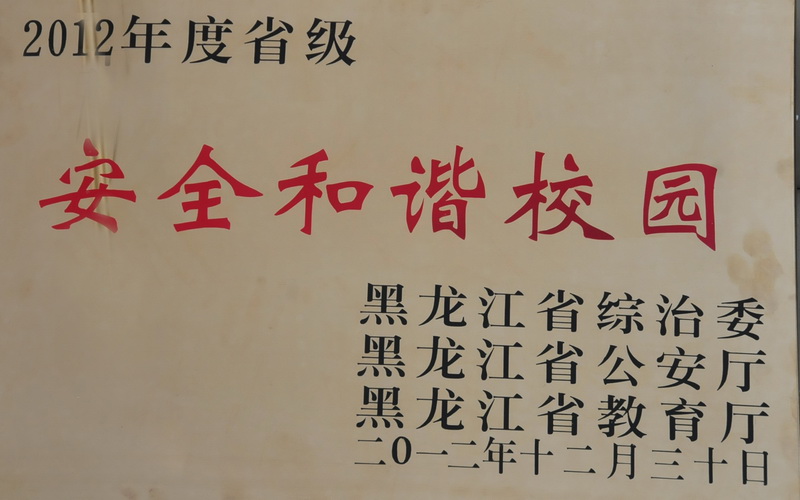 2012年度省级
安全和谐校园
黑龙江省综治委
黑龙江省公安厅
黑龙江省教育厅
二0一二年十二月三十日